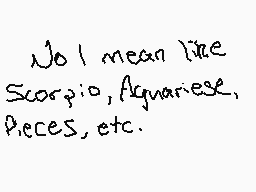 No I mean like
Scorpio, Aquariese,
Pieces, etc.